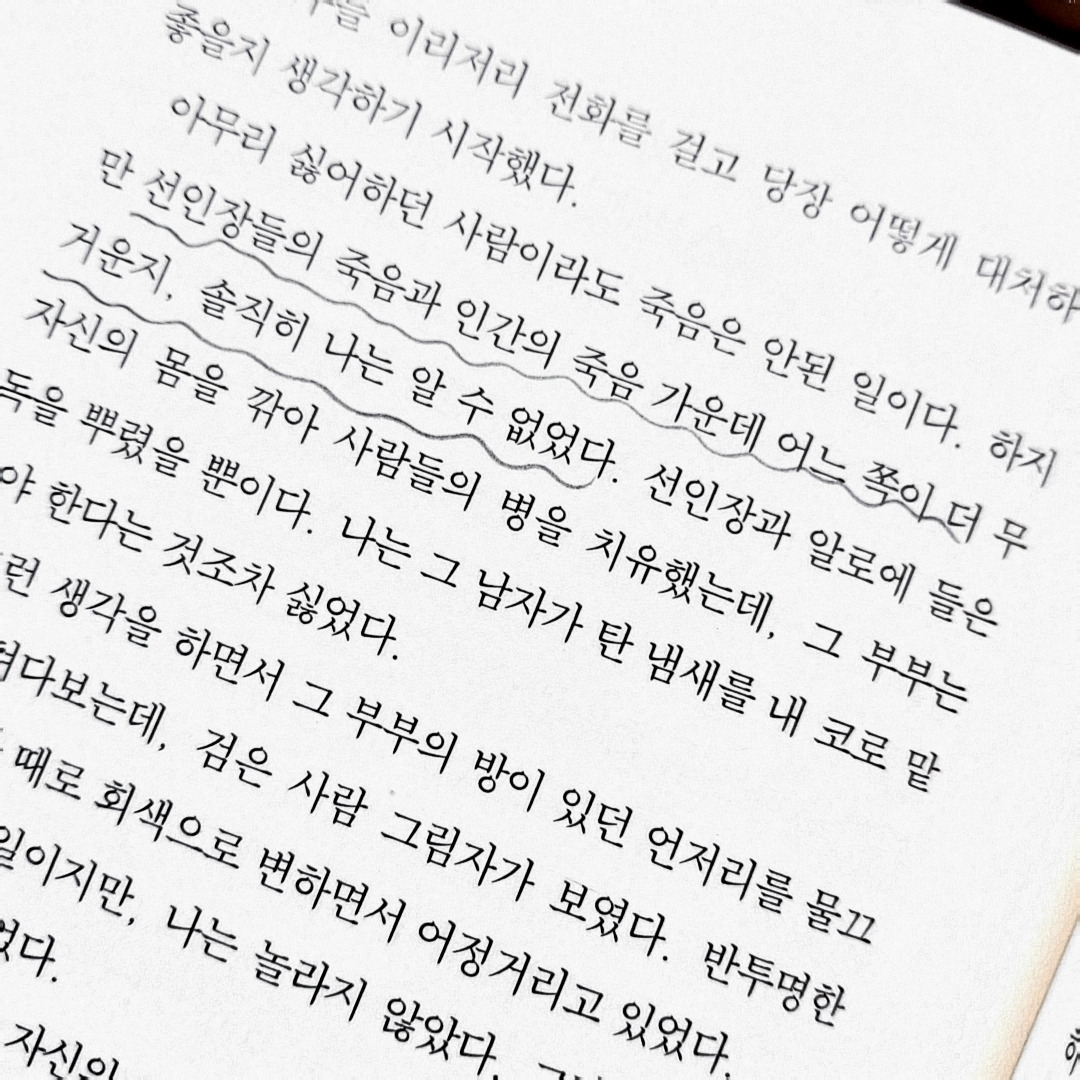 이리저리 전화를 걸고 당장 어떻게 대처하
좋을지 생각하기 시작했다.
아무리 싫어하던 사람이라도 죽음은 안된 일이다. 하지
만 선인장들의 죽음과 인간의 죽음 가운데 어느 쪽이 더 무
거운지, 솔직히 나는 알 수 없었다. 선인장과 알로에 들은
자신의 몸을 깎아 사람들의 병을 치유했는데, 그 부부는
독을 뿌렸을 뿐이다. 나는 그 남자가 탄 냄새를 내 코로 맡
야 한다는 것조차 싫었다.
런 생각을 하면서 그 부부의 방이 있던 언저리를 물끄
다보는데, 검은 사람 그림자가 보였다. 반투명한
때로 회색으로 변하면서 어정거리고 있었다.
일이지만, 나는 놀라지 않았다.
었다.
자신의